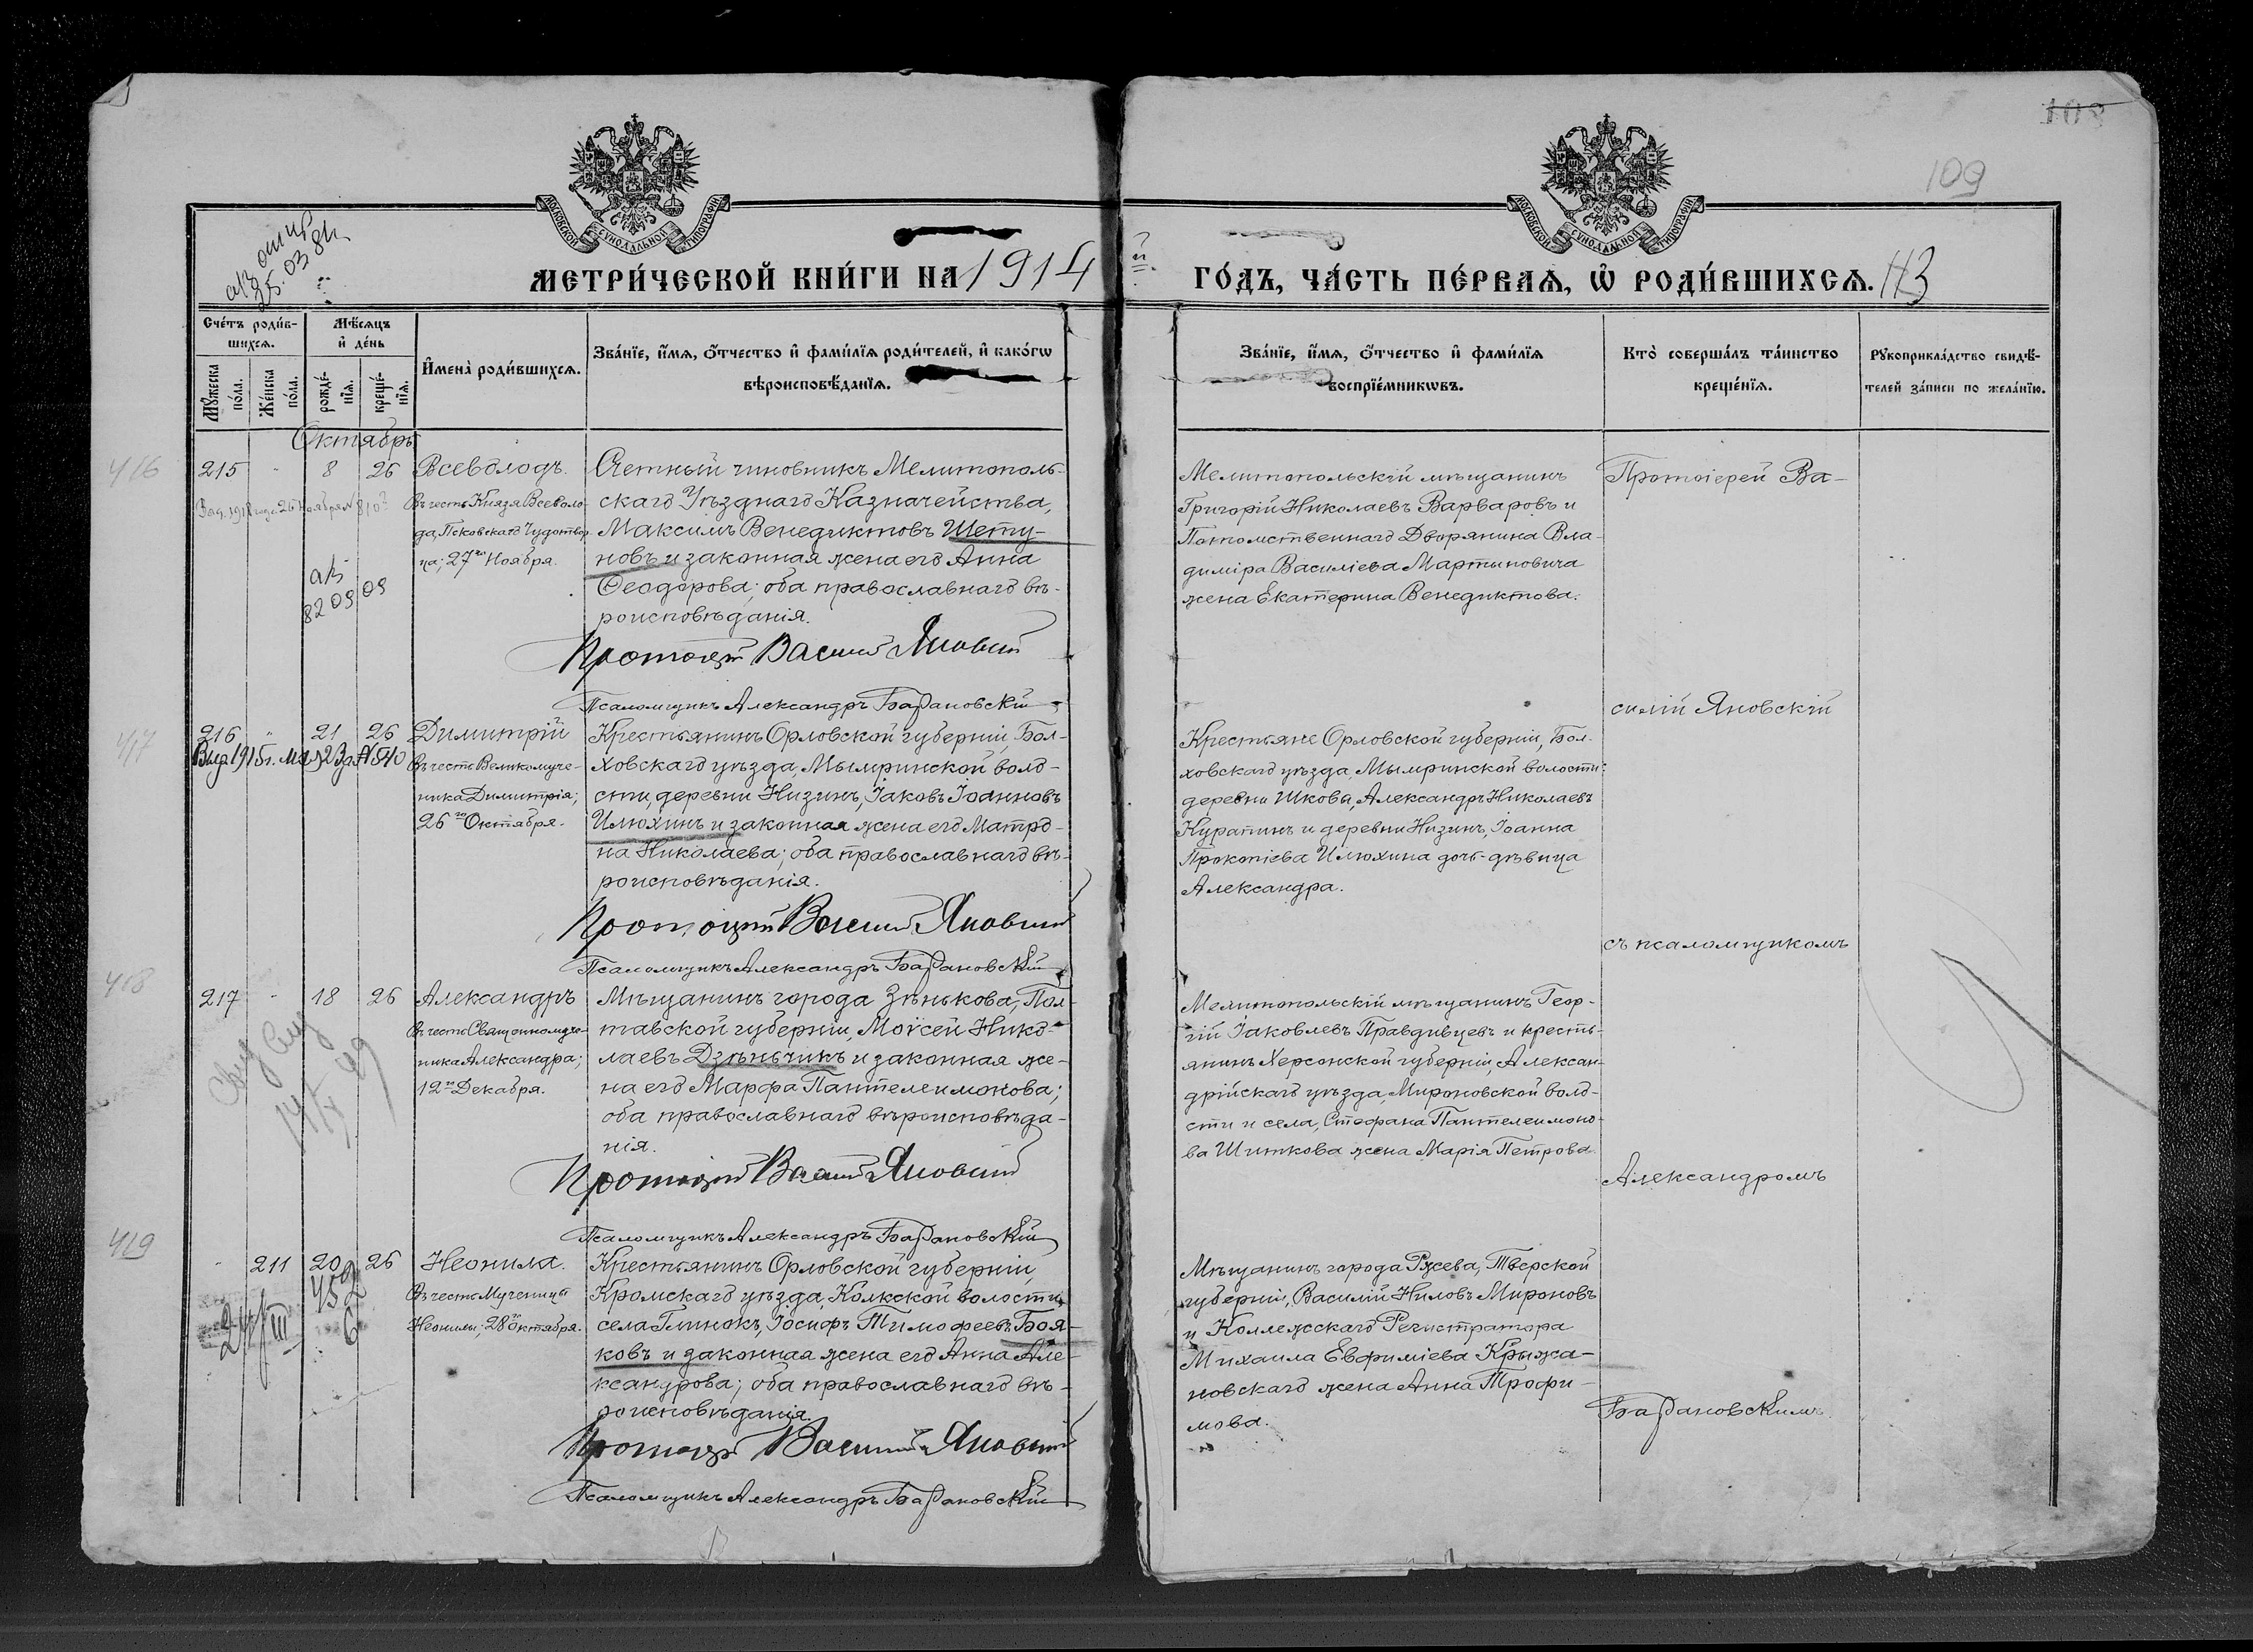 108
109
МОСКОВСКОЙ СѴНОДАЛЬНОЙ ТИПОГРАФІИ
МОСКОВСКОЙ СѴНОДАЛЬНОЙ ТИПОГРАФІИ
МЕТРИ́ЧЕСКОЙ КНИ́ГИ НА 1914 й ГО́ДЪ, ЧА́СТЬ ПЕ́РВАѦ, Ѡ҆ РОДИ́ВШИХСѦ. 113
Сче́тъ роди́в-
шихсѧ.
Мѣ́сѧцъ
и҆ де́нь
Мꙋ́жеска
по́ла.
Же́нска
по́ла.
рожде́-
нїѧ.
креще́-
нїѧ.
И҆мена̀ роди́вшихсѧ.
Зва́нїе, и҆́мѧ, ѻ҆́тчество и҆ фами́лїѧ роди́телей, и҆ како́гѡ
вѣроисповѣ́данїѧ.
Зва́нїе, и҆́мѧ, ѻ҆́тчество и҆ фами́лїѧ
воспрїе́мникѡвъ.
Кто̀ соверша́лъ та́инство
креще́нїѧ.
Рꙋкоприкла́дство свидѣ́-
телей за́писи по жела́нїю.
Октябрь
416
215 " 8 26 Всеволодъ.
Въ честь Князя Всеволо-
да, Псковскаго Чудотвор-
ца; 27го Ноября.
Счетный чиновникъ Мелитополь-
скаго Уѣзднаго Казначейства,
Максимъ Венедиктовъ Шету-
новъ и законная жена его Анна
Ѳеодорова; оба православнаго вѣ-
роисповѣданія.
Протоіерей Василій Яновскій
Псаломщикъ Александръ Барановскій
Мелитопольскій мѣщанинъ
Григорій Николаевъ Варваровъ и
Потомственнаго Дворянина Вла-
диміра Василіева Мартыновича
жена Екатерина Венедиктова.
Протоіерей Ва-
силій Яновскій
417
216 " 21 26 Димитрій
Выд. 1915 г. Мая 23 д. №540
Въ честь Великомуче-
ника Димитрія;
26го Октября.
Крестьянинъ Орловской губерніи, Бол-
ховскаго уѣзда, Мымринской воло-
сти, деревни Низинъ, Іаковъ Іоанновъ
Илюхинъ и законная жена его Матро-
на Николаева; оба православнаго вѣ-
роисповѣданія.
Протоіерей Василій Яновскій
Псаломщикъ Александръ Барановскій
Крестьяне Орловской губерніи, Бол-
ховскаго уѣзда, Мымринской волости:
деревни Шкова, Александръ Николаевъ
Курапинъ и деревни Низинъ, Іоанна
Прокопіева Илюхина дочь-дѣвица
Александра.
съ псаломщикомъ
418
217 " 18 26 Александръ
Въ честь Священномуче-
ника Александра;
12го Декабря.
Мѣщанинъ города Зѣнькова, Пол-
тавской губерніи, Моѵсей Нико-
лаевъ Дзѣньчикъ и законная же-
на его Марфа Пантелеимонова;
оба православнаго вѣроисповѣда-
нія.
Протоіерей Василій Яновскій
Псаломщикъ Александръ Барановскій
Мелитопольскій мѣщанинъ Геор-
гій Іаковлевъ Правдивцевъ и кресть-
янинъ Херсонской губерніи, Алексан-
дрійскаго уѣзда, Мироновской воло-
сти и села, Стефана Пантелеимоно-
ва Шиткова жена Марія Петрова.
Александромъ
419
" 211 20 26 Неонила.
Въ честь Мученицы
Неонилы; 28го Октября.
Крестьянинъ Орловской губерніи,
Кромскаго уѣзда, Колкской волости,
села Глинокъ, Іосифъ Тимофеевъ Боя-
ковъ и законная жена его Анна Але-
ксандрова; оба православнаго вѣ-
роисповѣданія.
Протоіерей Василій Яновскій
Псаломщикъ Александръ Барановскій
Мѣщанинъ города Ржева, Тверской
губерніи, Василій Ниловъ Мироновъ
и Коллежскаго Регистратора
Михаила Евфиміева Крыжа-
новскаго жена Анна Трофи-
мова.
Барановскимъ